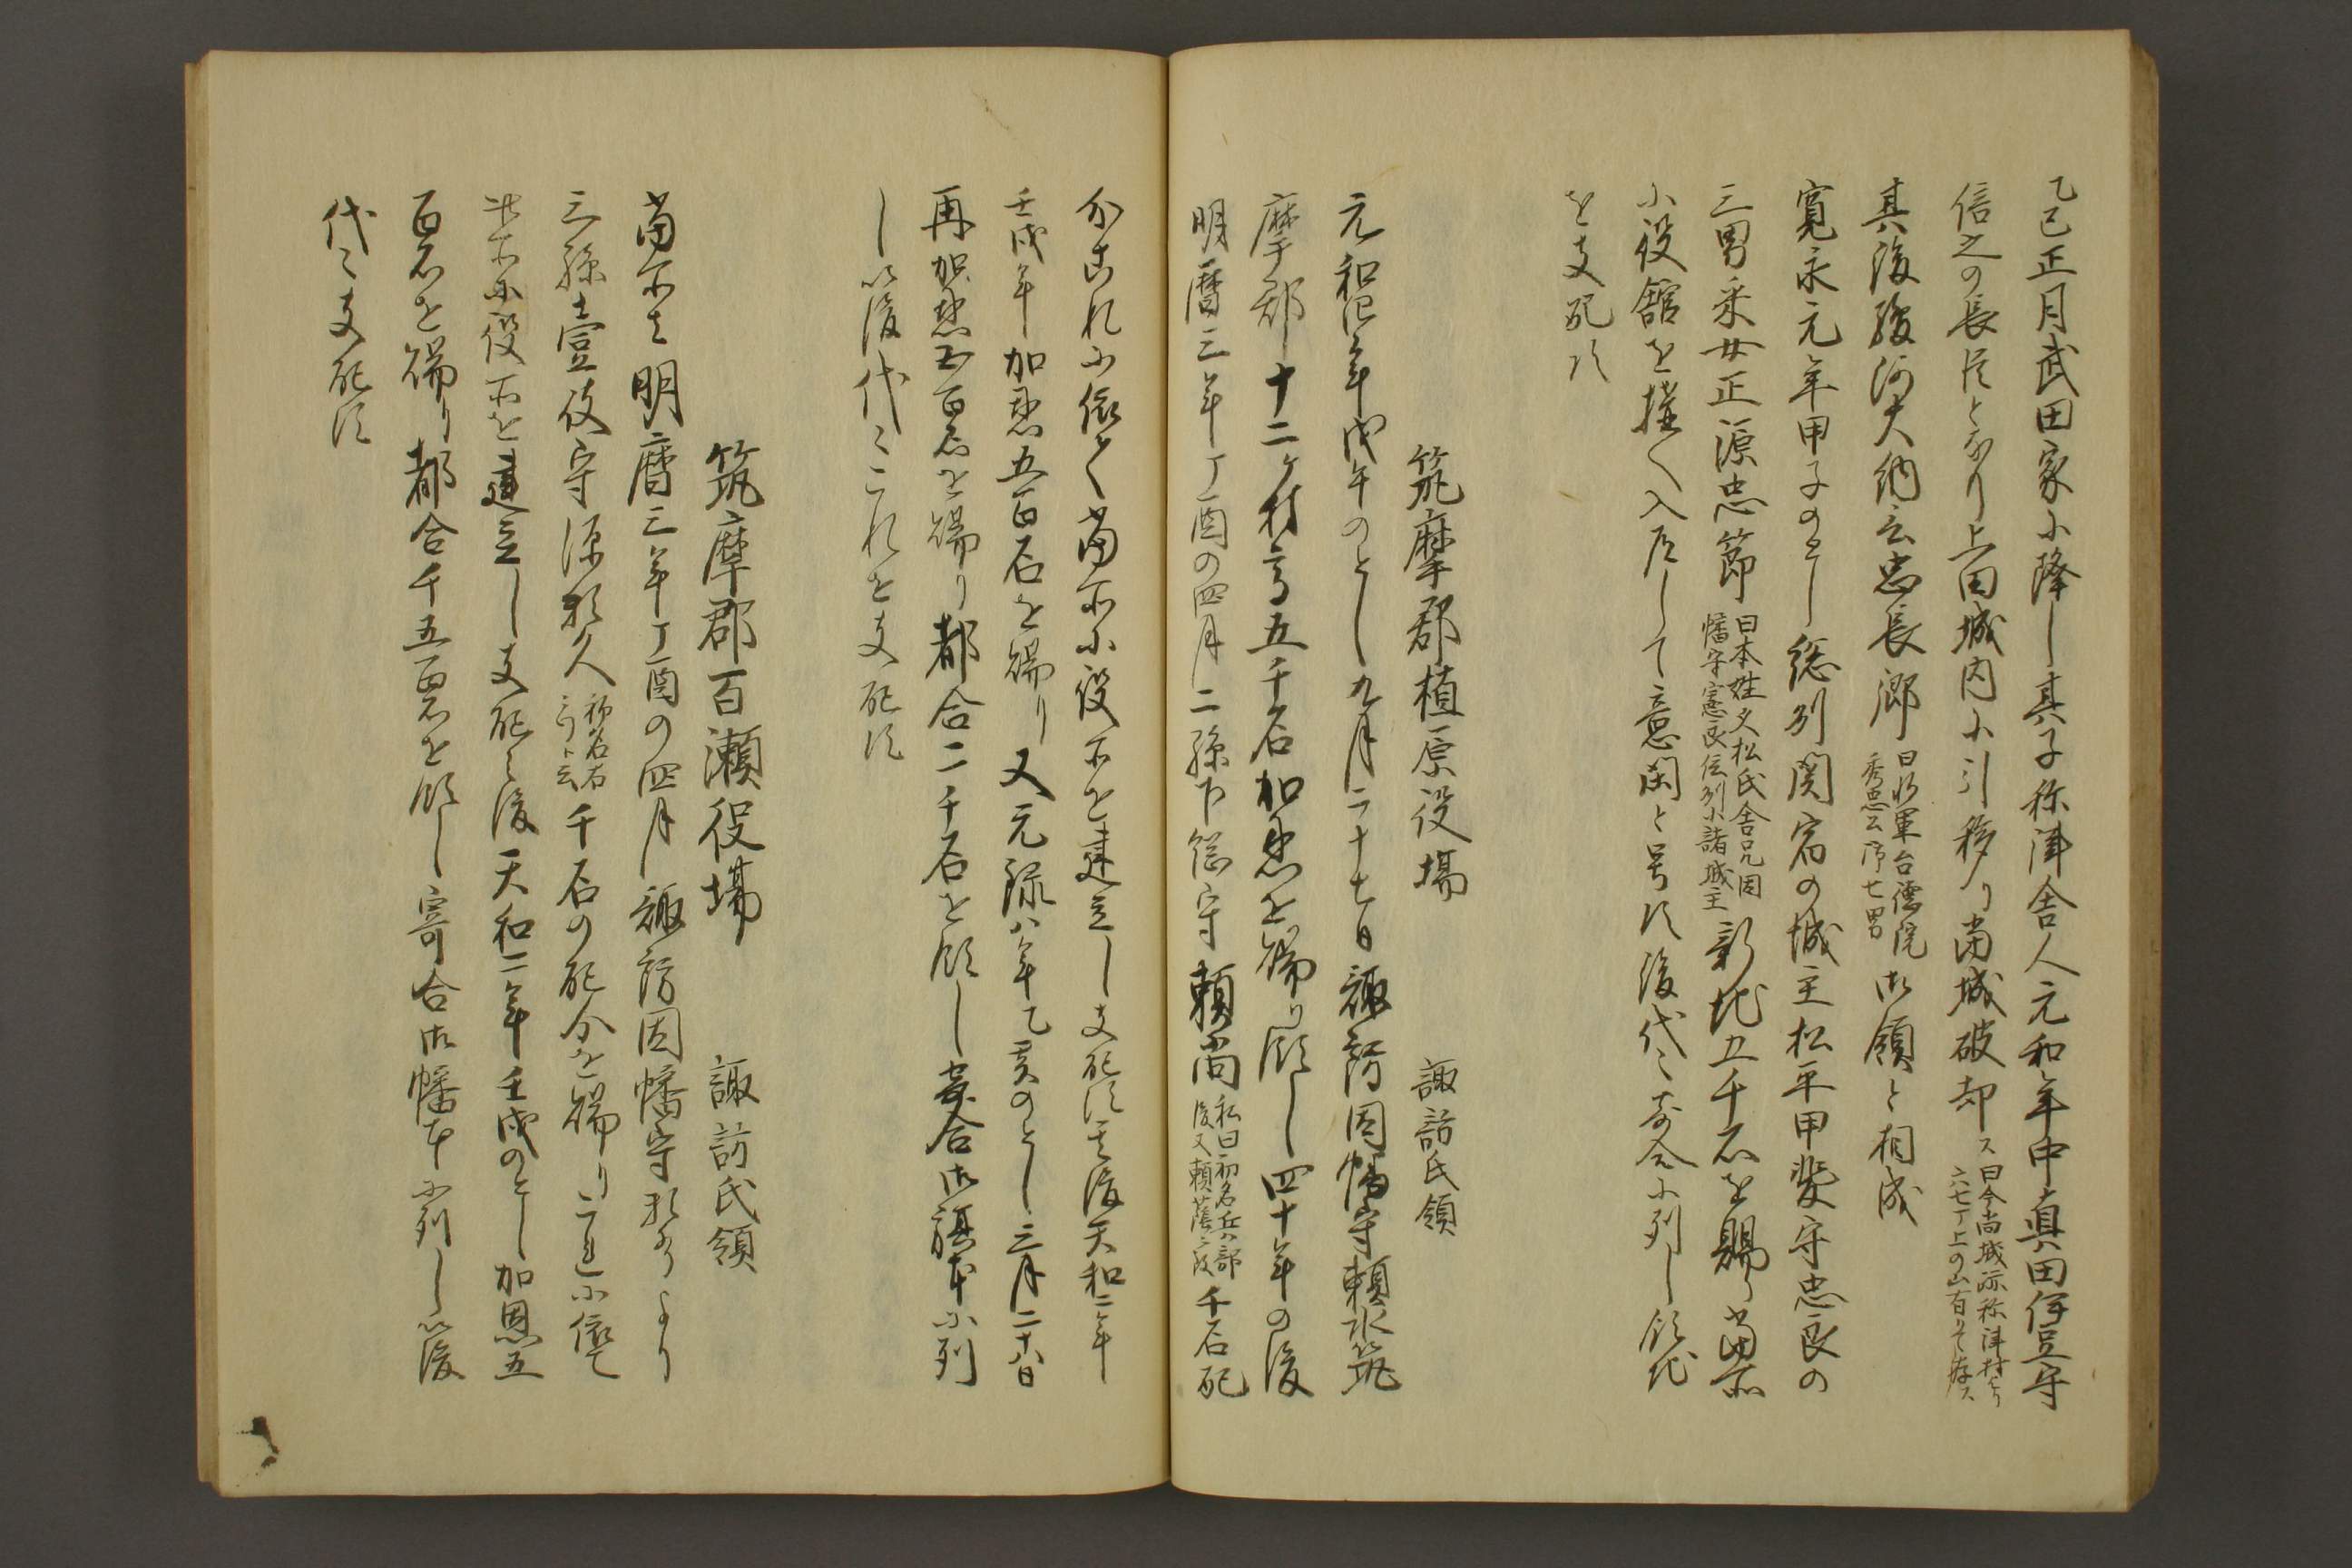 乙巳正月武田家小降し其子祢津舎人元和年中真田伊豆守
信之の長臣となり上田城内小引移り當城破却ス曰今尚城跡祢津村より六七丁上の山有りて存ス
其後駿河大納言忠長卿曰将軍台德院秀忠公御七男御領と相成
寛永元年甲子のとし総列関宿の城主松平甲斐守忠良の
三男采女正源忠節曰本姓久松氏舎兄因幡守憲良信列小諸城主新地五千石を賜り當所
小役舘を搆へ入居して意閑と号す後代々寄合小列し領地
を支配す
筑摩郡植原役場　諏訪氏領
元和四年戊午のとし九月二十七日諏訪因幡守頼水筑
摩郡十二ヶ村高五千石加恩を賜り領し四十年の後
明暦三年丁酉の四月二孫下総守頼尚私曰初名兵部後又頼蔭ニ改千石配
分これ小依て當所小役所を建立し支配す其後天和二年
壬戌年加恩五百石を賜り又元禄八年乙亥のとし三月二十八日
再加恩五百石を賜り都合二千石を領し寄合御旗本小列
し以後代々これを支配す
筑摩郡百瀬役場　諏訪氏領
當所は明暦三年丁酉の四月諏訪因幡守より
三孫壹岐守源頼久千石の配分を賜りこれ小依て
當所小役所を建立し支配し後天和二年壬戌のとし加恩五
百石を賜り都合千五百石を領し寄合御幡本小列し以後
代々支配す